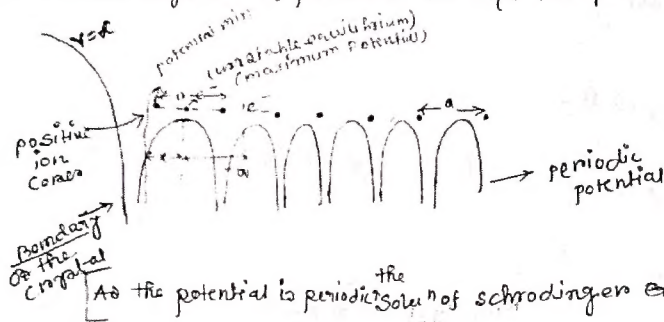 potential min
(unstable equilibrium)
(maximum potential)
v=α
e⁻
a
positive
ion
cores
periodic
potential
Boundary
of the
crystal
As the potential is periodic the Soluⁿ of schrodinger e